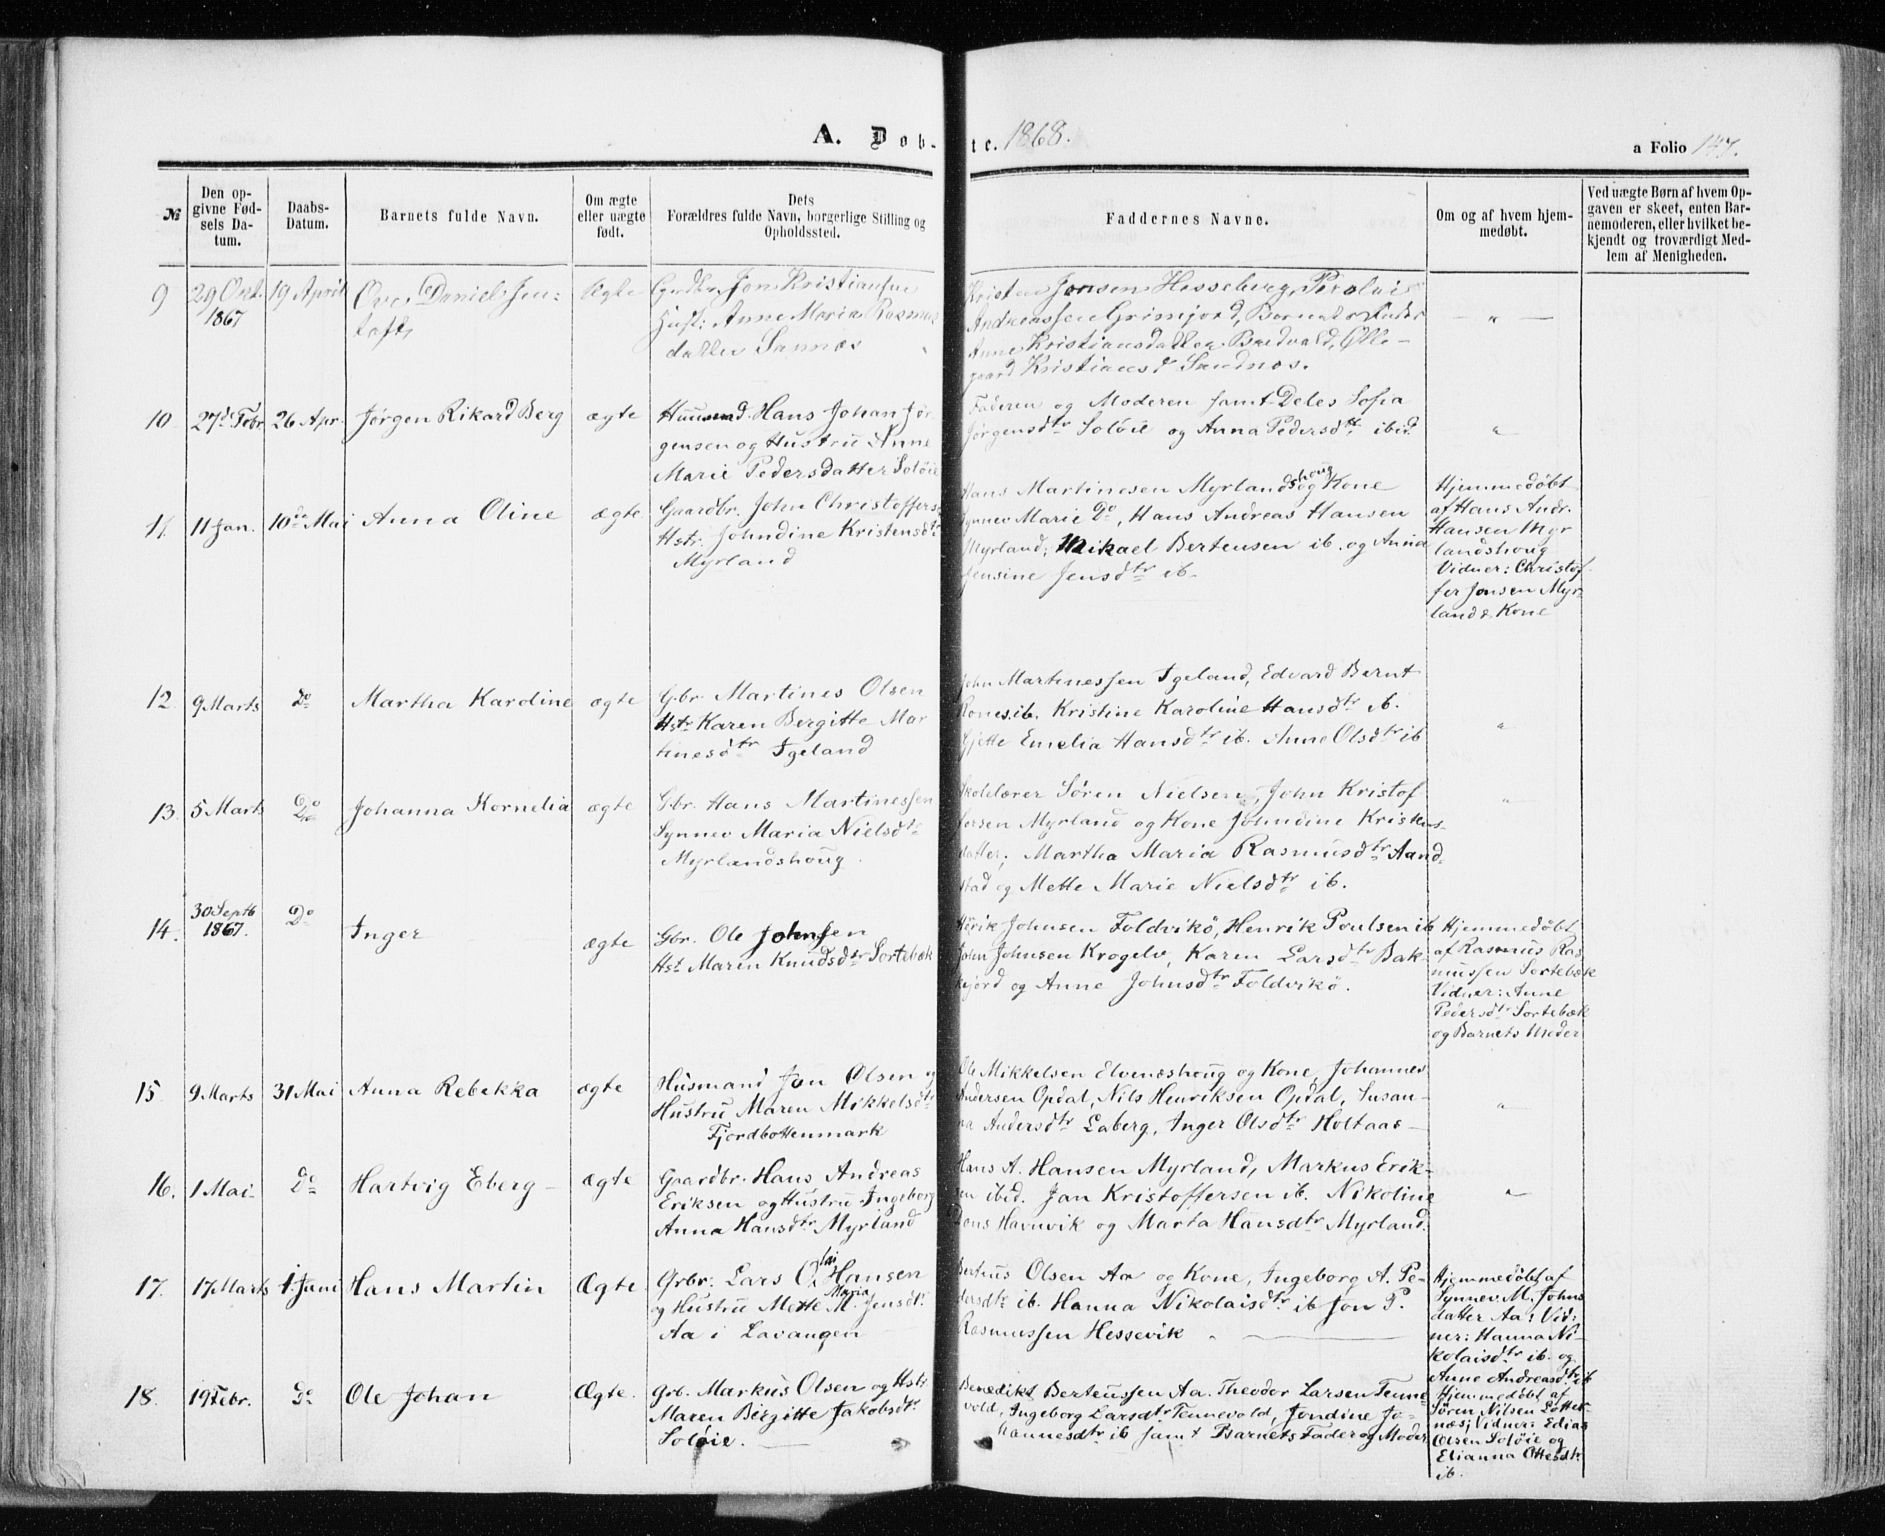 A. Døb-
te. 1868.
a Folio 147.
№
Den op-
givne Fød-
sels Da-
tum.
Daabs-
Datum.
Barnets fulde Navn.
Om ægte
eller uægte
født.
Dets
Forældres fulde Navn, borgerlige Stilling og
Opholdssted.
Faddernes Navne.
Om og af hvem hjem-
medøbt.
Ved uægte Børn af hvem Op-
gaven er skeet, enten Bar-
nemoderen, eller hvilket be-
kjendt og troværdigt Med-
lem af Menigheden.
9
29 Okt.
1867
19 April
Ove Danielssen
Ægte
Jon Kristiansen
Hust: Anne Maria Rasmus
datter Sannæs
Kristen Jonsen Hesseberg, Nikolai
Andreassen Grimjord, Barnets Fader
Anne Kristiansdatter Bredvald, Olle-
gaard Kristiansd Sandnæs.
— " —
10
27de Febr
26 Apr.
Jørgen Rikard Berg
ægte
Huusmd. Hans Johan Jør-
gensen og Hustru Anne
Marie Pedersdatter Soløie
Faderen og Moderen samt Deles Sofia
Jørgensdtr Soløie og Anna Pedersdtr ibid.
"
11.
11 Jan.
10de Mai
Anna Oline
ægte
Gaardbr. John Christoffers
Hstr. Johndine Kristensdtr
Myrland
Hans Martinesen Myrlandshoug og Kone
Synnev Marie Do, Hans Andreas Hansen
Myrland; Mikael Bertensen ib. og Anna
Jensine Jensdtr ib.
Hjemmedøbt
af Hans Andr.
Hansen Myr
landshoug
Vidner: Christof
fer Jonsen Myr-
land & Kone
12
9 Marts
Do
Martha Karoline
ægte
Gbr Martines Olsen
Hstr Karen Bergitte Mar
tinesdtr Igeland
John Martinessen Igeland, Edvard Bernt
Rones ib. Kristine Karoline Hansdtr ib.
Gjette Emelia Hansdtr ib. Anne Olsdtr ib
"
13.
5 Marts
Do
Johanna Kornelia
ægte
Gbr. Hans Martinessen
Synnev Maria Nielsdtr
Myrlandshoug.
Skolelærer Sören Nielsen, John Kristof
fersen Myrland og Kone Johndine Kristens-
datter, Martha Maria Rasmusdtr Aand-
stad og Mette Marie Nielsdtr ib.
"
14.
30 Septb
1867.
Do
Inger
ægte
Gbr. Ole Johnsen
Hst Maren Knudsdtr Sortebæk
Johnsen Foldvikö, Henrik Poulsen ib
John Johnsen Krogelv, Karen Larsdtr Bak-
kejord og Anne Johnsdtr Foldvikö.
Hjemmedøbt
af Rasmus Ras
mussen Sortebæk
Vidner: Anne
Pedersdtr Sortebæk
og Barnets Moder
15.
9 Marts
31 Mai
Anna Rebekka
ægte
Husmand Jon Olsen og
Hustru Maren Mikkelsdtr
Fjordbottenmark
Ole Mikkelsen Elvenæshoug og Kone, Johannes
Andersen Opdal, Nils Henriksen Opdal, Susan-
na Andersdtr Laberg, Inger Olsdtr Holtaas —
"
16.
1 Mai
Do
Hartvig Eberg —
Ægte
Gaardbr. Hans Andreas
Eriksen og Hustru Ingeborg
Anna Hansdtr Myrland
Hans A. Hansen Myrland, Markus Erik-
sen ibid. Jan Kristoffersen ib. Nikoline
Dons Havnvik og Marta Hansdtr Myrland.
"
17.
17 Marts
1. Juni
Hans Martin
Ægte
Grbr. Lars Olai Hansen
og Hustru Mette Maria M. Jensdtr
Aa i Lavangen
Berteus Olsen Aa og Kone, Ingeborg A. Pe-
dersdtr ib. Hanna Nikolaisdtr ib Jon P.
Rasmussen Hessevik
Hjemmedøbt af
Synnev M. Johns
datter Aa: Vid-
ner: Hanna Ni-
kolaisdtr ib. og
Anne Andreasdtr ib
18.
19 Febr.
Do
Ole Johan
Ægte.
Grb. Markus Olsen og Hstr
Maren Birgitte Jakobsdtr
Soløie.
Benedikt Berteussen Aa. Theodor Larsen Tenne
vold, Ingeborg Larsdtr Tennevold, Jondine Jo-
hannesdtr ib samt Barnets Fader og Moder
Hjemmedøbt af
Søren Nilsen Lotter-
næs; Vidner: Edias
Olsen Soløie og
Elianna Ottesdtr
ib.